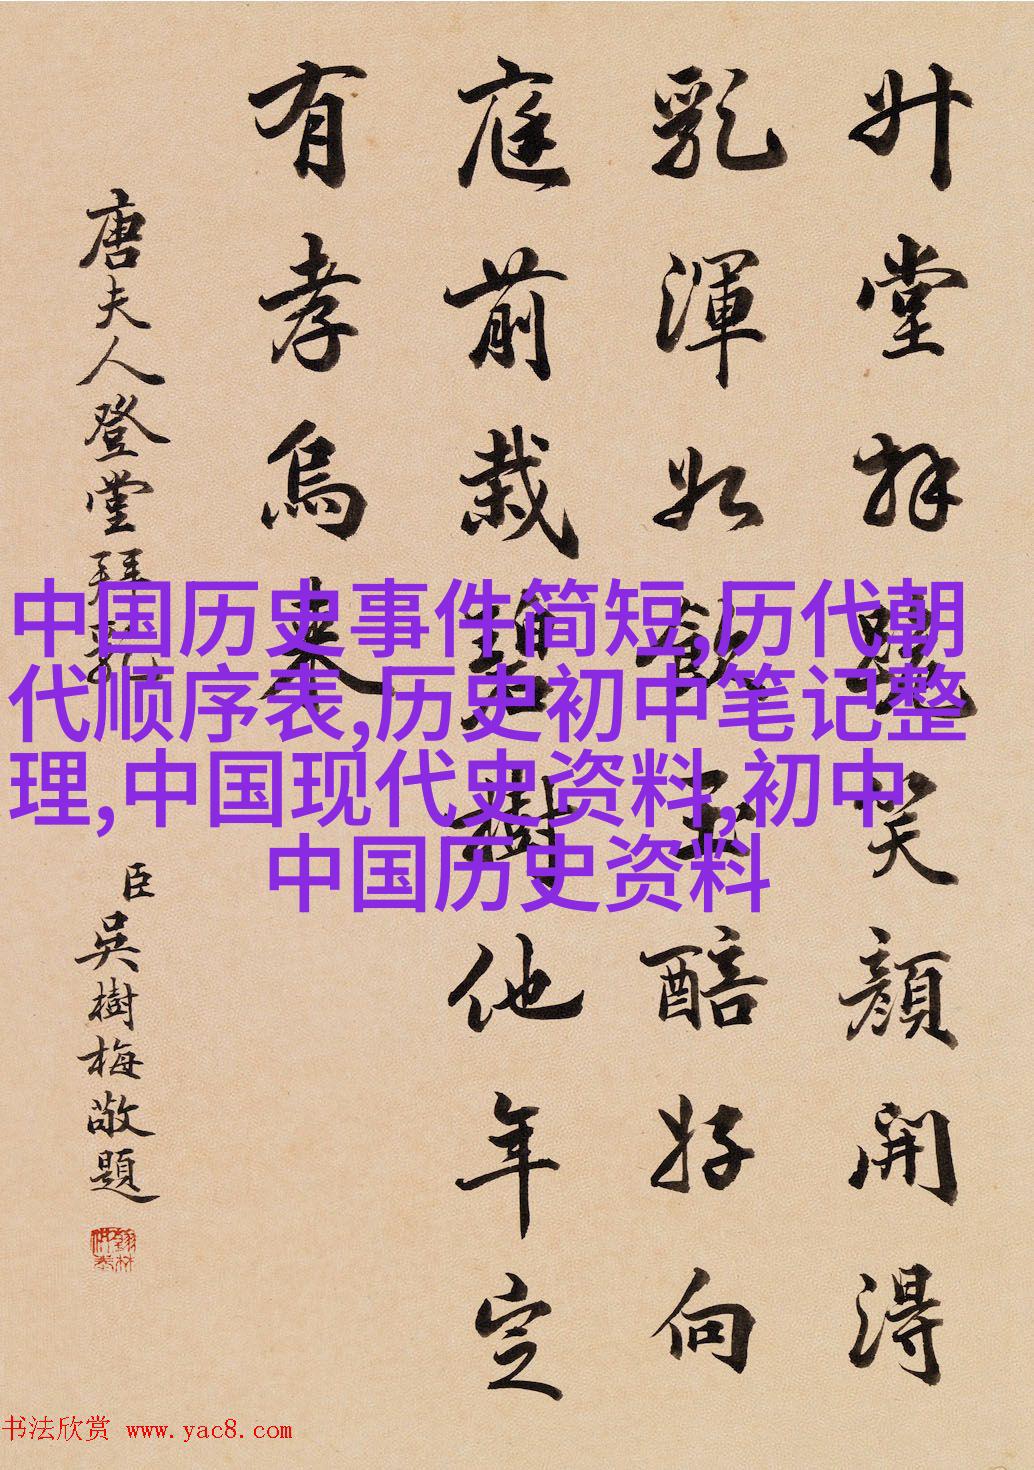 升堂拜笑顏開得
乳渾如玉醅好向
庭前栽碧樹他年定
有孝烏來
唐夫人登堂拜
臣吳樹梅敬題
中国历史事件简短,历代朝
代顺序表,历史初中笔记整
理,中国现代史资料,初中
中国历史资料
书法欣赏 www.yac8.com